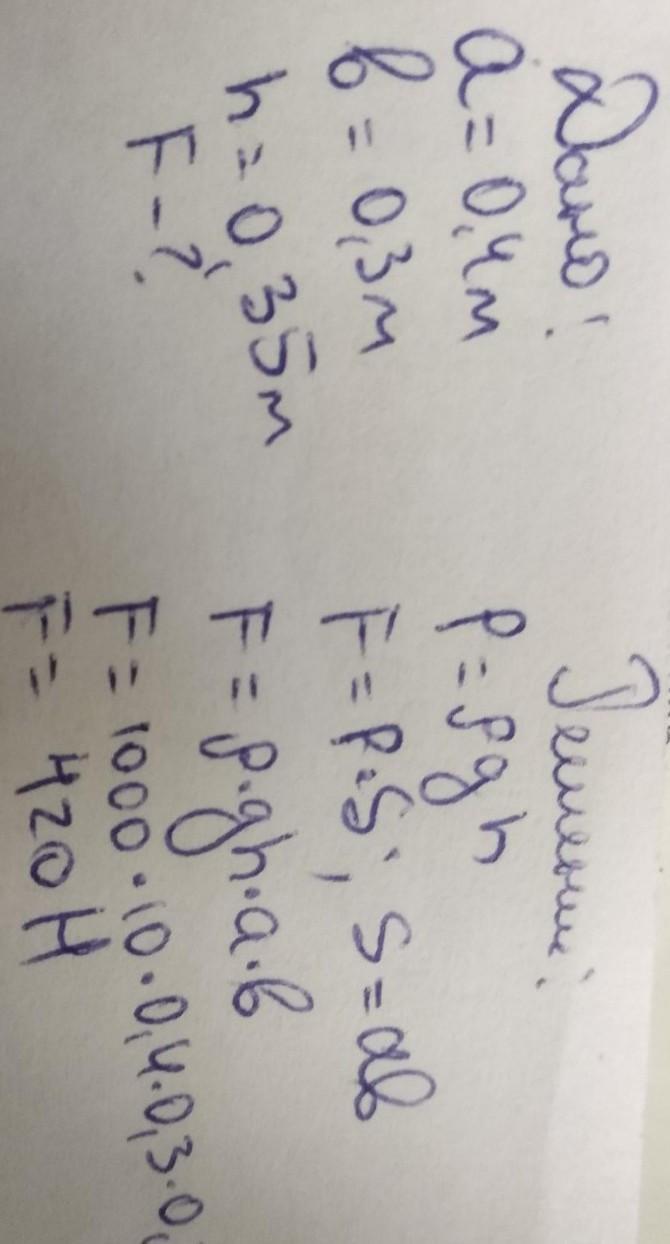 Дано:
a = 0,4 м
b = 0,3 м
h = 0,35 м
F - ?
Решение:
P = ρgh
F = P·S; S = ab
F = ρ·gh·a·b
F = 1000·10·0,4·0,3·0,
F = 420 Н